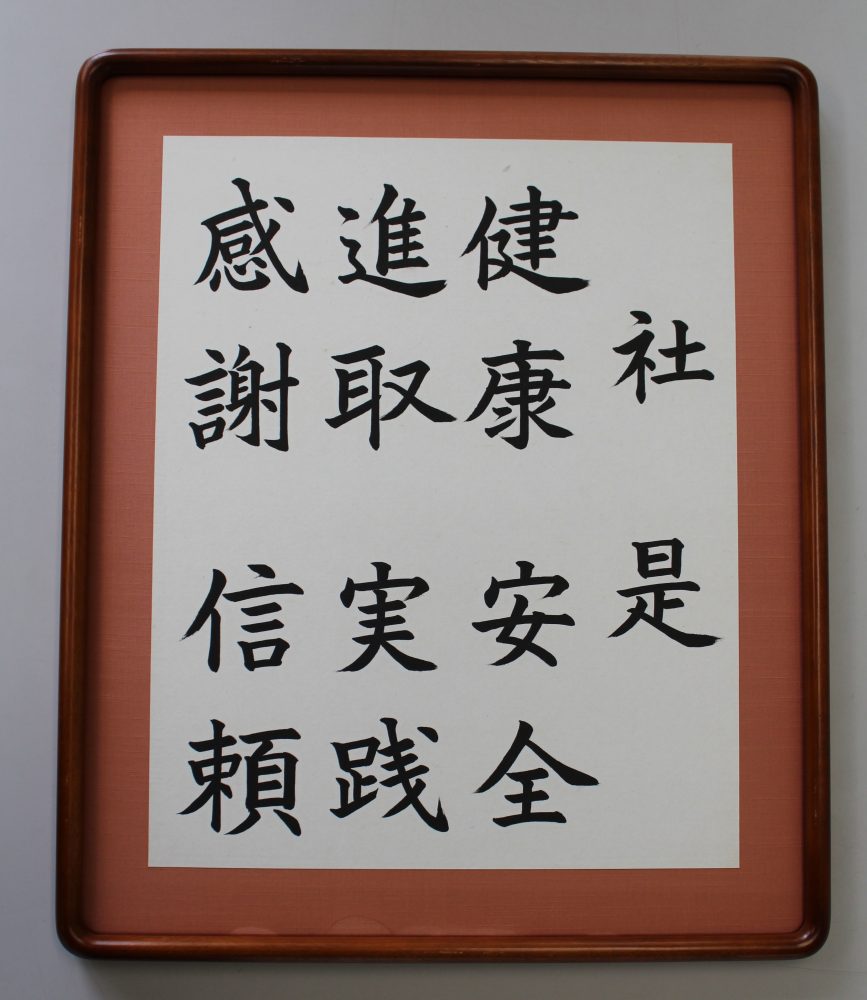 社是
健康 安全
進取 実践
感謝 信頼